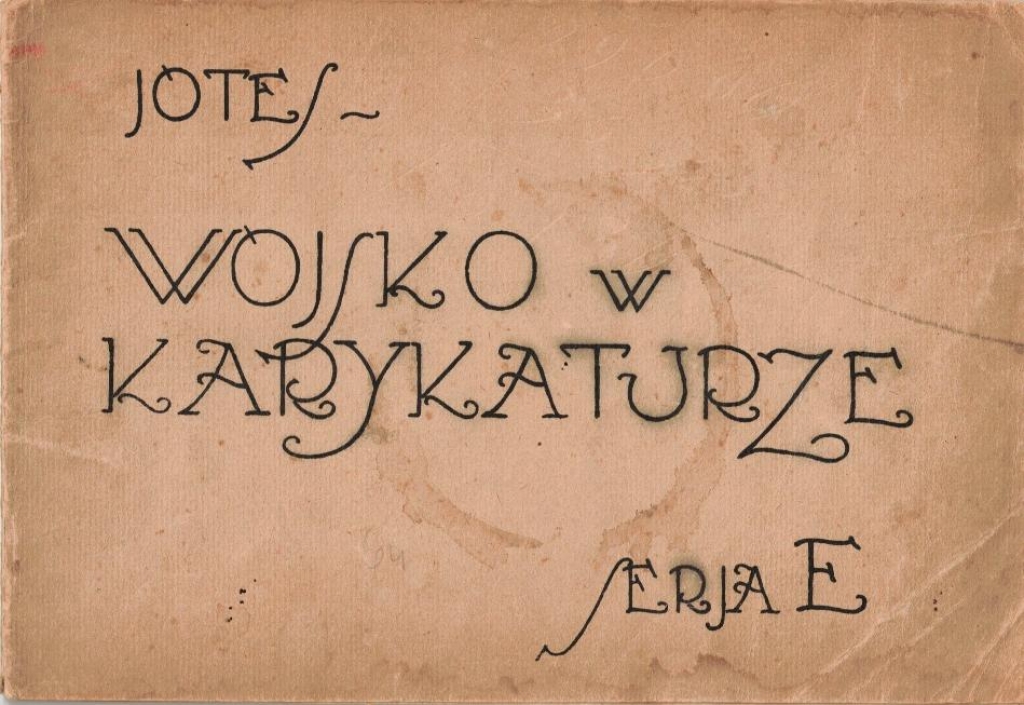 JOTES ~
WOJSKO W
KARYKATURZE
SERJA E